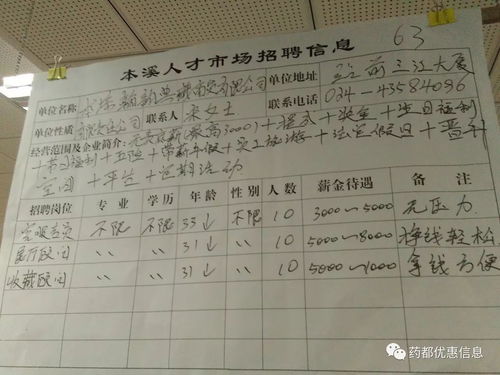 63
本溪人才市场招聘信息
单位名称 本溪 商贸有限公司 单位地址 站前三江大厦
单位性质 有限责任公司 联系人 宋女士 联系电话 024-43584096
经营范围及企业简介: 无责底薪(最高3000)+提成+奖金+生日福利
+节日福利+五险+带薪年假+员工旅游+法定假日+晋升
空间+ +定期活动
招聘岗位 专业 学历 年龄 性别 人数 薪金待遇 备注
客服专员 不限 不限 35↓ 不限 10 3000~5000 无压力
医疗顾问 〃 〃 31↓ 〃 10 5000~8000 挣钱轻松
收藏顾问 〃 〃 31↓ 〃 10 拿钱方便
药都优惠信息